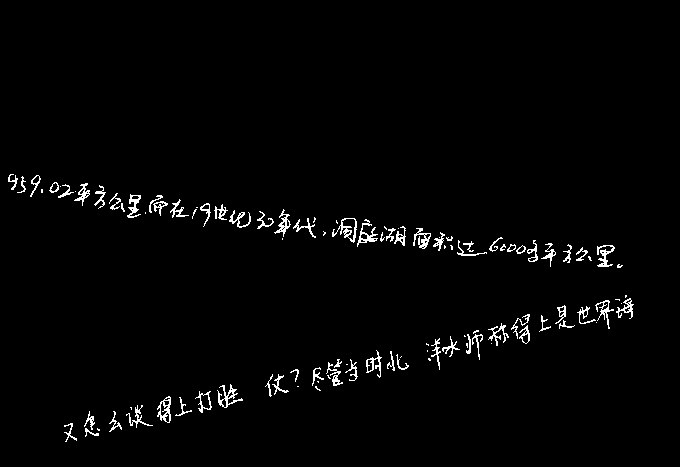 959.02平方公里,而在19世纪30年代,洞庭湖面积达6000多平方公里。
又怎么谈得上打胜仗?尽管当时北洋水师称得上是世界海